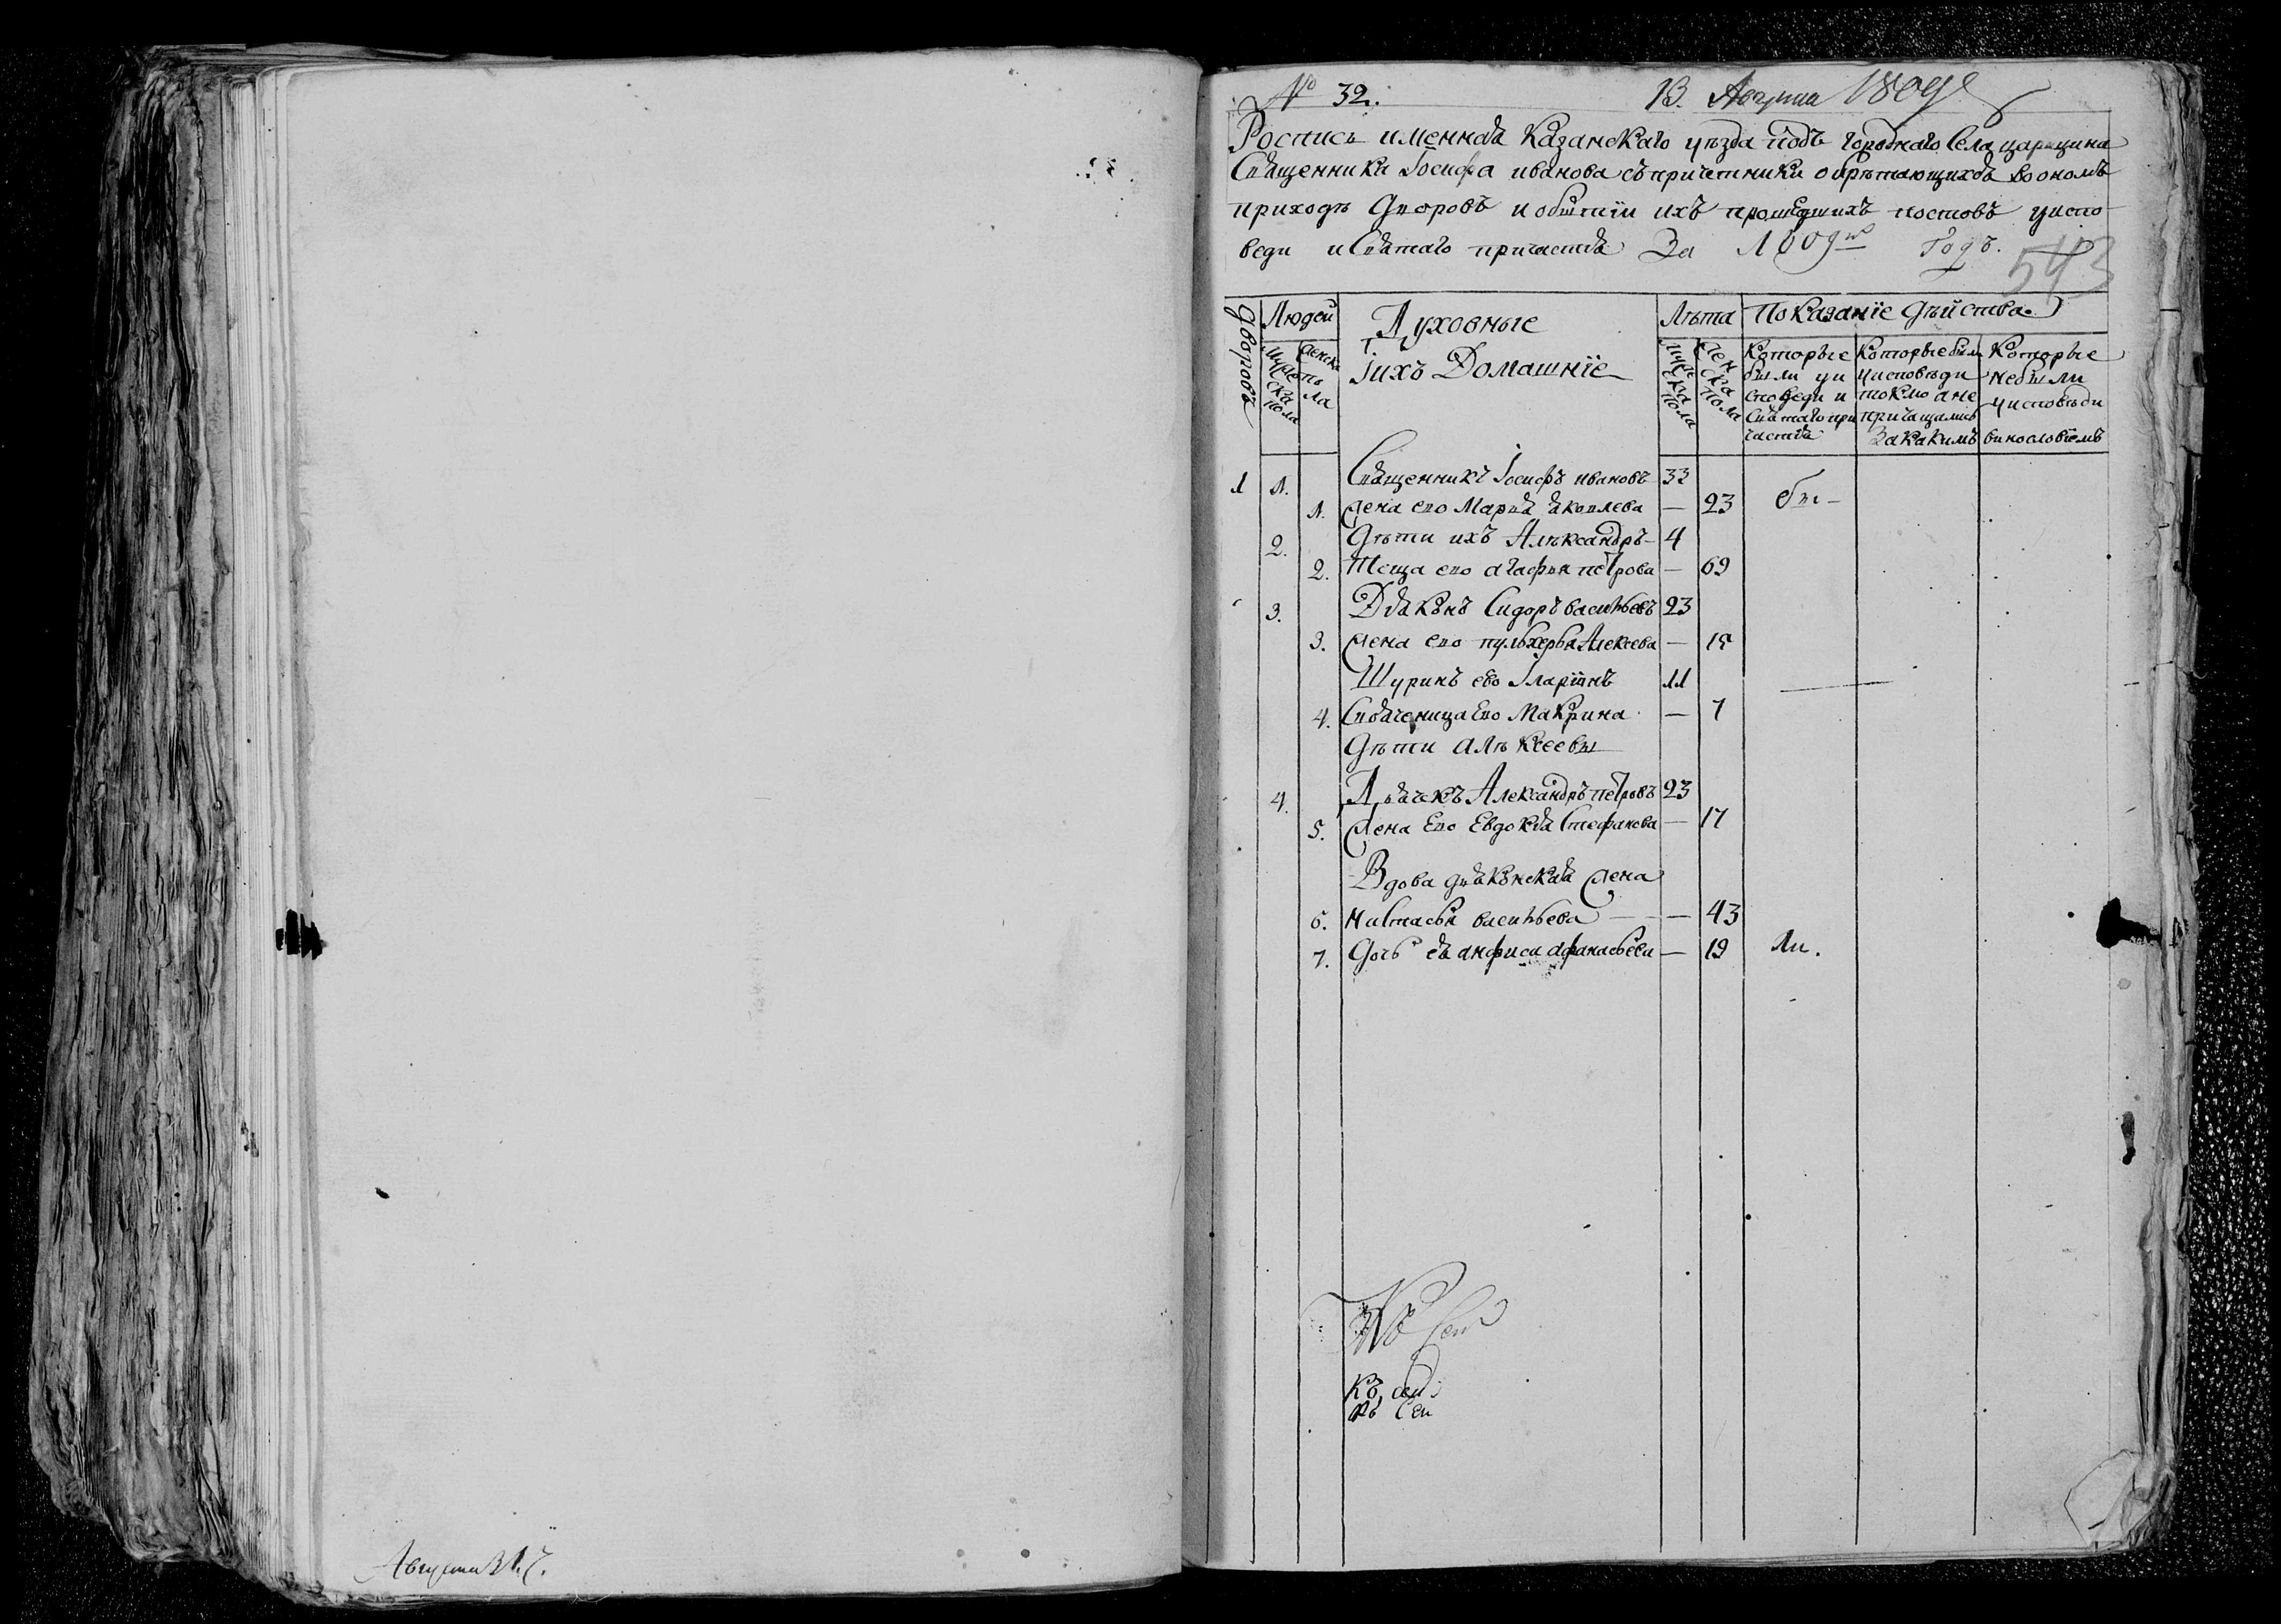 Августа 31. ч.
№ 32.
13. Августа 1809
Роспись именная Казанскаго уезда подъ городнаго села царицына
Священника Іосифа иванова съ причетники обретающихся во ономъ
приходе Дворовъ и о бытіи ихъ прошедшихъ постовъ у испо
веди и Святаго причастія За 1809й Годъ.
543
Дворовъ
Людей
Мужеска пола
Женска пола
Духовные
іихъ Домашніе
Лѣта
Мужеска пола
Женска пола
Показаніе дѣйства
Которые были у исповеди и Святаго причастія
Которые были у исповѣди токмо а не причащались
Которые не были у исповѣди
За какимъ винословіемъ
1 1. Священникъ Іосифъ ивановъ 33
1. Жена ево Марія яковлева — 23 бы-
2. Дѣти ихъ Алѣксандръ - 4
2. Теща ево агафья петрова — 69
3. Діаконъ Сидоръ васильевъ 23
3. Жена ево пульхерья Алексева — 15
Шуринъ ево Іларіонъ 11
4. Своячени́ца Ево Макрина — 7
Дѣти алѣксеевы
4. Дьячекъ Александръ петровъ 23
5. Жена Ево Евдокія Стефанова — 17
Вдова діаконская Жена
6. Настасья васильева — 43
7. Дочь ея анфиса афанасьева — 19 ли.
къ